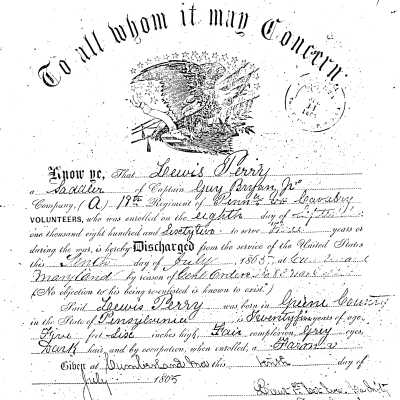 To all whom it may Concern:
Know ye, That Lewis Perry
a Saddler of Captain Guy Bryan, Jr
Company, (A) 18th Regiment of Penna Cavalry
VOLUNTEERS, who was enrolled on the eighth day of
one thousand eight hundred and Sixty two to serve Three years or
during the war, is hereby Discharged from the service of the United States
this Tenth day of July 1865, at
Maryland by reason of
(No objection to his being reenlisted is known to exist.)
Said Lewis Perry was born in Greene County
in the State of Pensylvania is Twenty five years of age,
Five feet Six inches high, Fair complexion, Grey eyes,
Dark hair, and by occupation, when enrolled, a Farmer
Given at Cumberland Md this tenth day of
July 1865